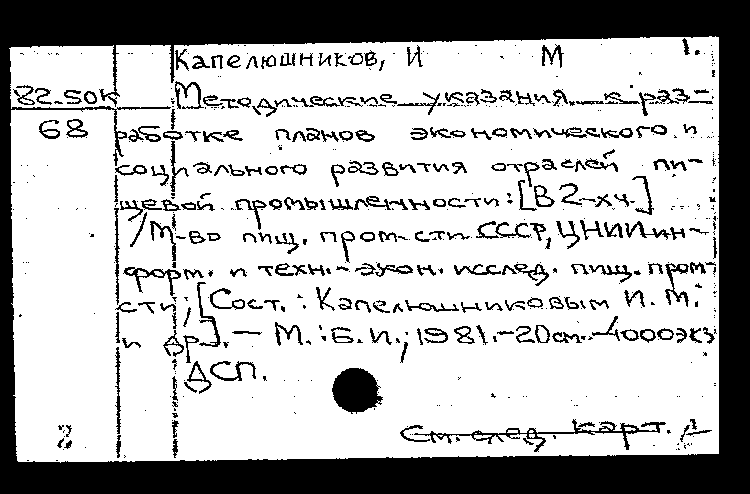 1.
Капелюшников, И М
82.50К Методические указания к раз-
68 работке планов экономического и
социального развития отраслей пи-
щевой промышленности: [В 2-х ч.]
/М-во пищ. пром-сти СССР, ЦНИИ ин-
форм. и техн.-экон. исслед. пищ. пром-
сти; [Сост.: Капелюшниковым И. М.
и др.]. — М.: Б. И., 1981. - 20 см. - 1000 экз
ДСП.
См. след. карт.